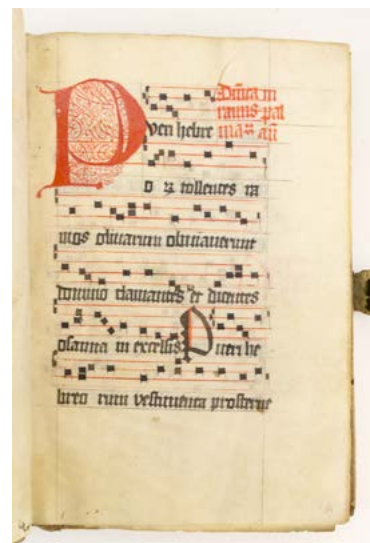 Dñica in
ramis pal
Pveri hebre maꝝ añ
o ꝝ tollentes ra
mos oliuarum obuiauerunt
domino clamantes et dicentes
osanna in excelsis Pueri he
breo rum vestimenta prosterne